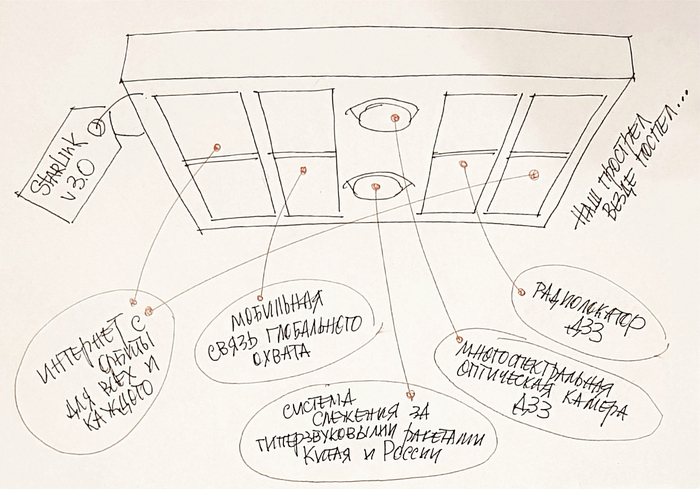 StarLink
v 3.0
НАШ ПОСТРЕЛ
ВЕЗДЕ ПОСПЕЛ...
ИНТЕРНЕТ С
ОРБИТЫ
ДЛЯ ВСЕХ И
КАЖДОГО
МОБИЛЬНАЯ
СВЯЗЬ ГЛОБАЛЬНОГО
ОХВАТА
СИСТЕМА
СЛЕЖЕНИЯ ЗА
ГИПЕРЗВУКОВЫМИ РАКЕТАМИ
КИТАЯ И РОССИИ
МНОГОСПЕКТРАЛЬНАЯ
ОПТИЧЕСКАЯ КАМЕРА
ДЗЗ
РАДИОЛОКАТОР
ДЗЗ